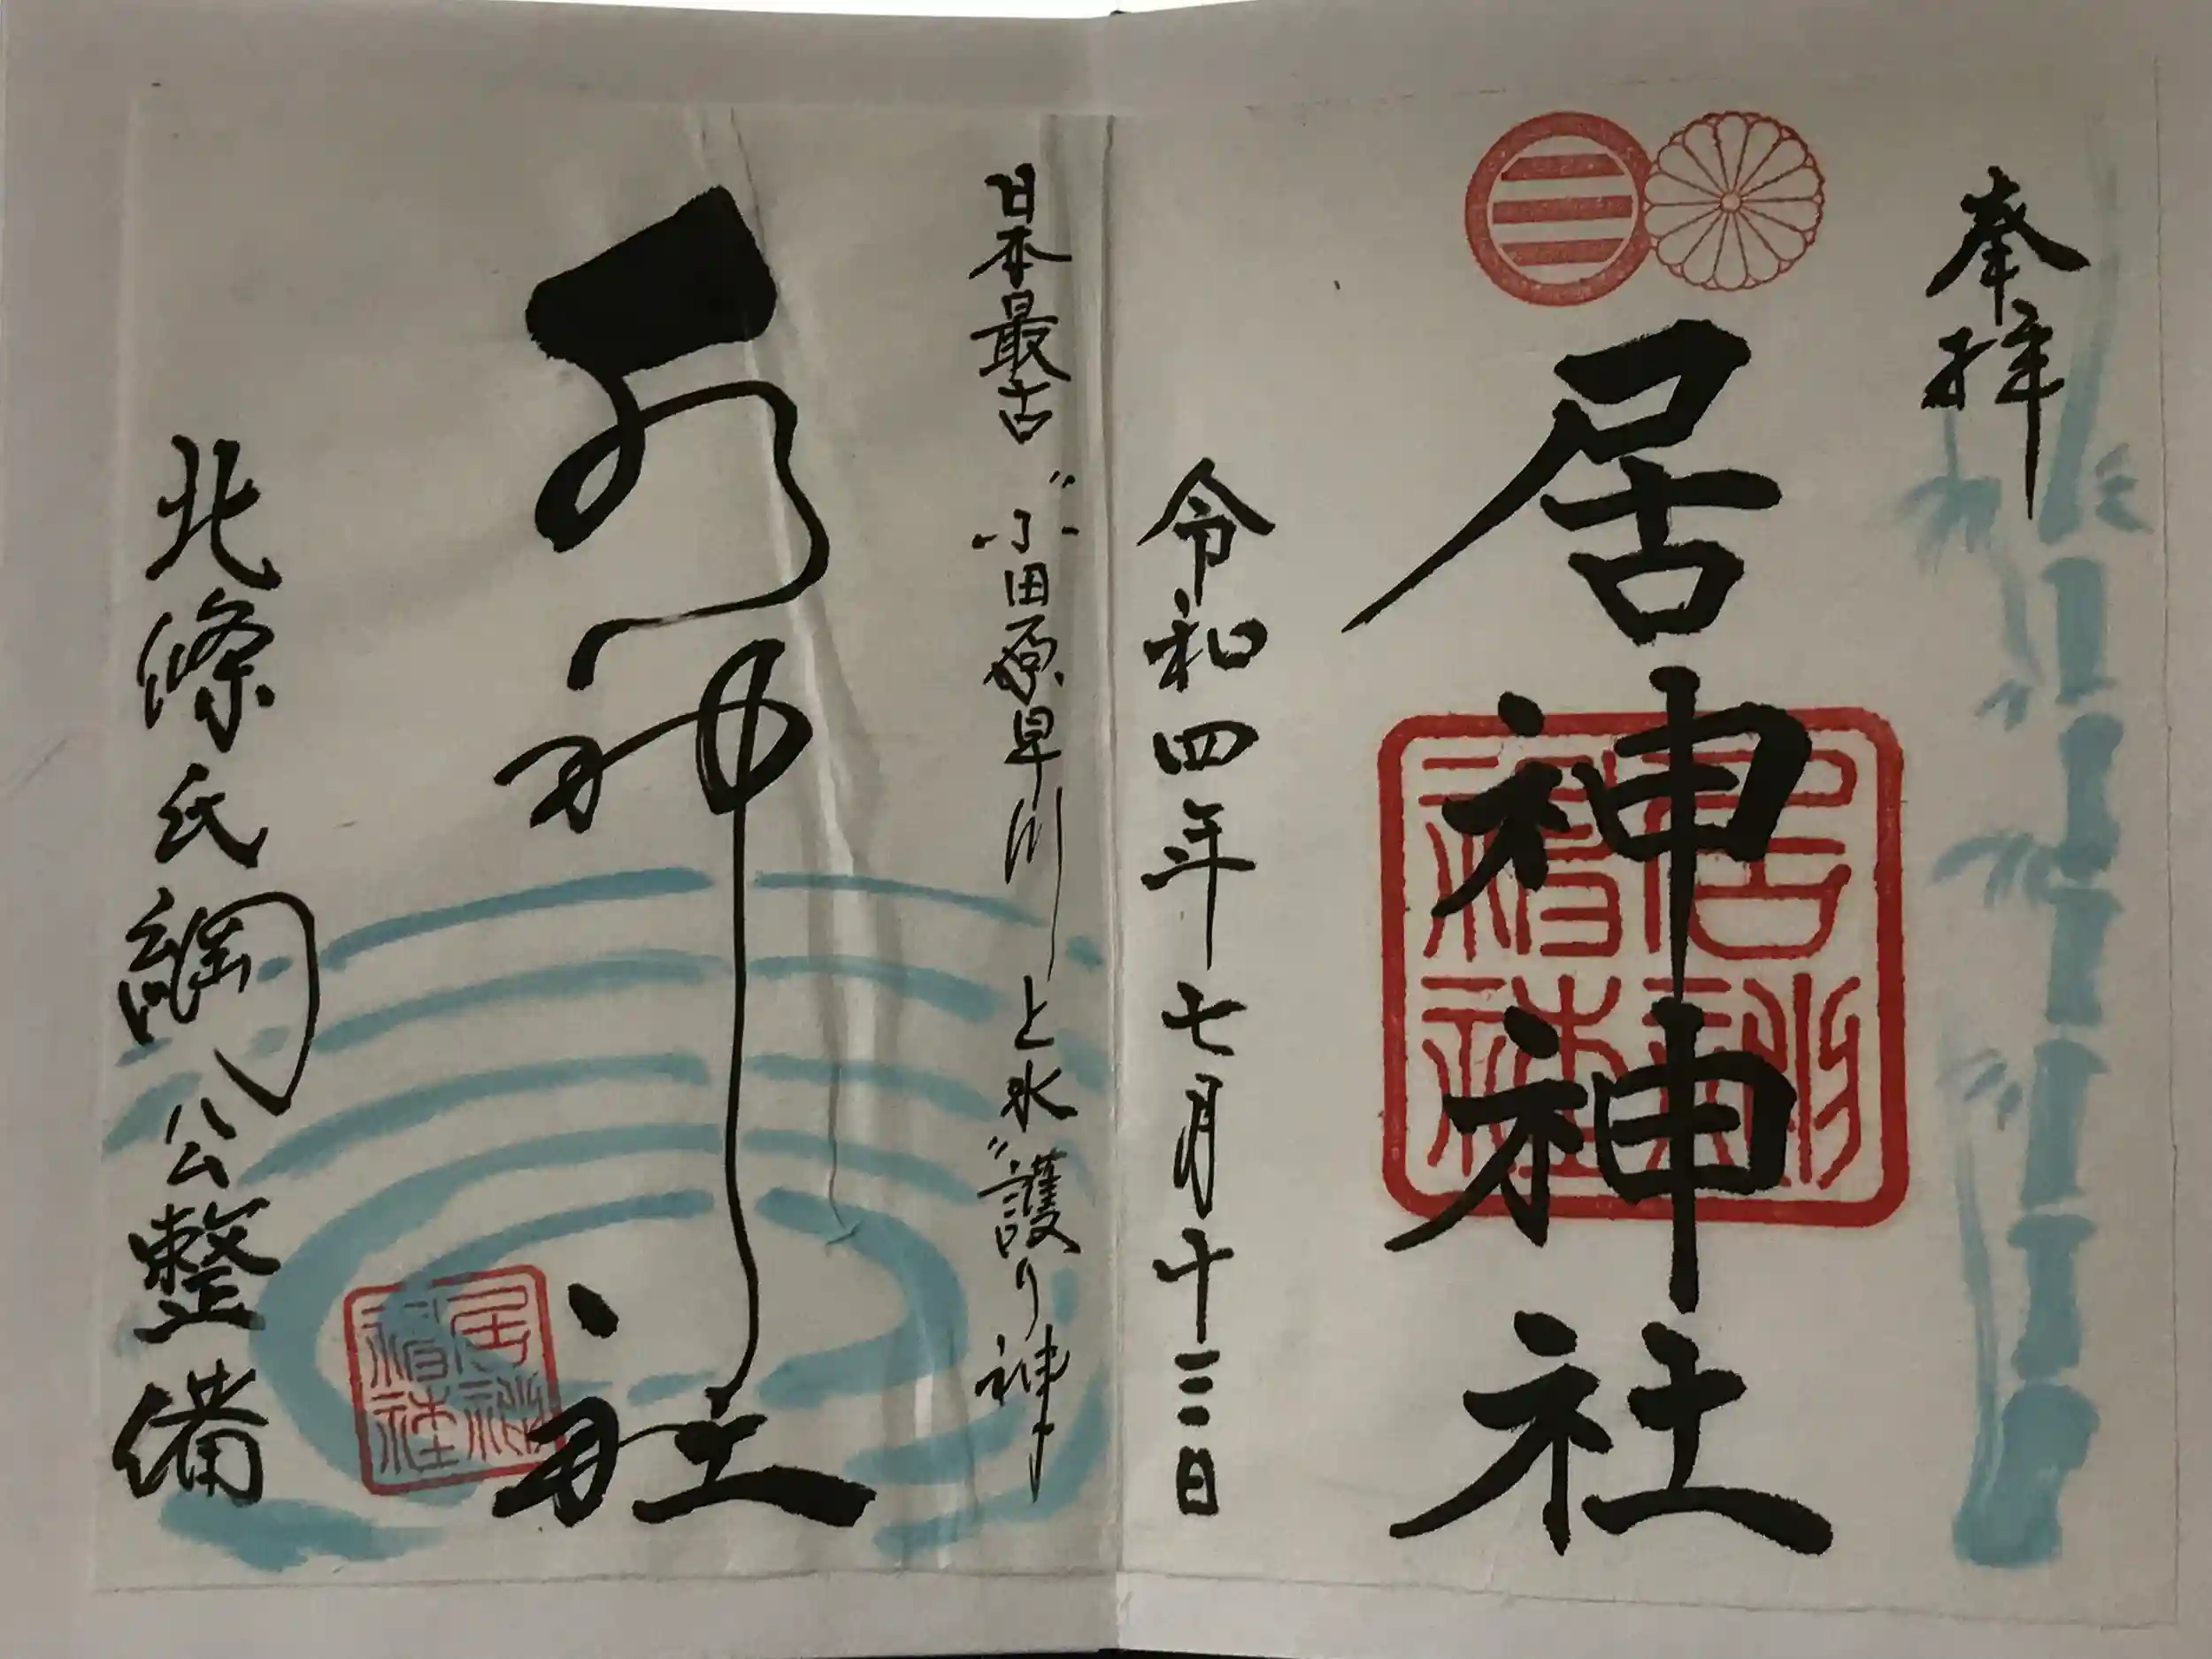 奉拝
居神神社
居神神社
令和四年七月十三日
日本最古〝小田原早川上水〟護り神
水神社
居神神社
北條氏綱公整備